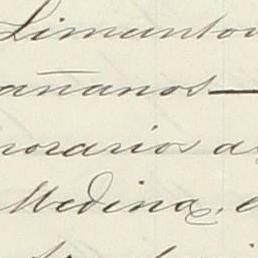 Limantou
añanos—
norarios a
Medina, e